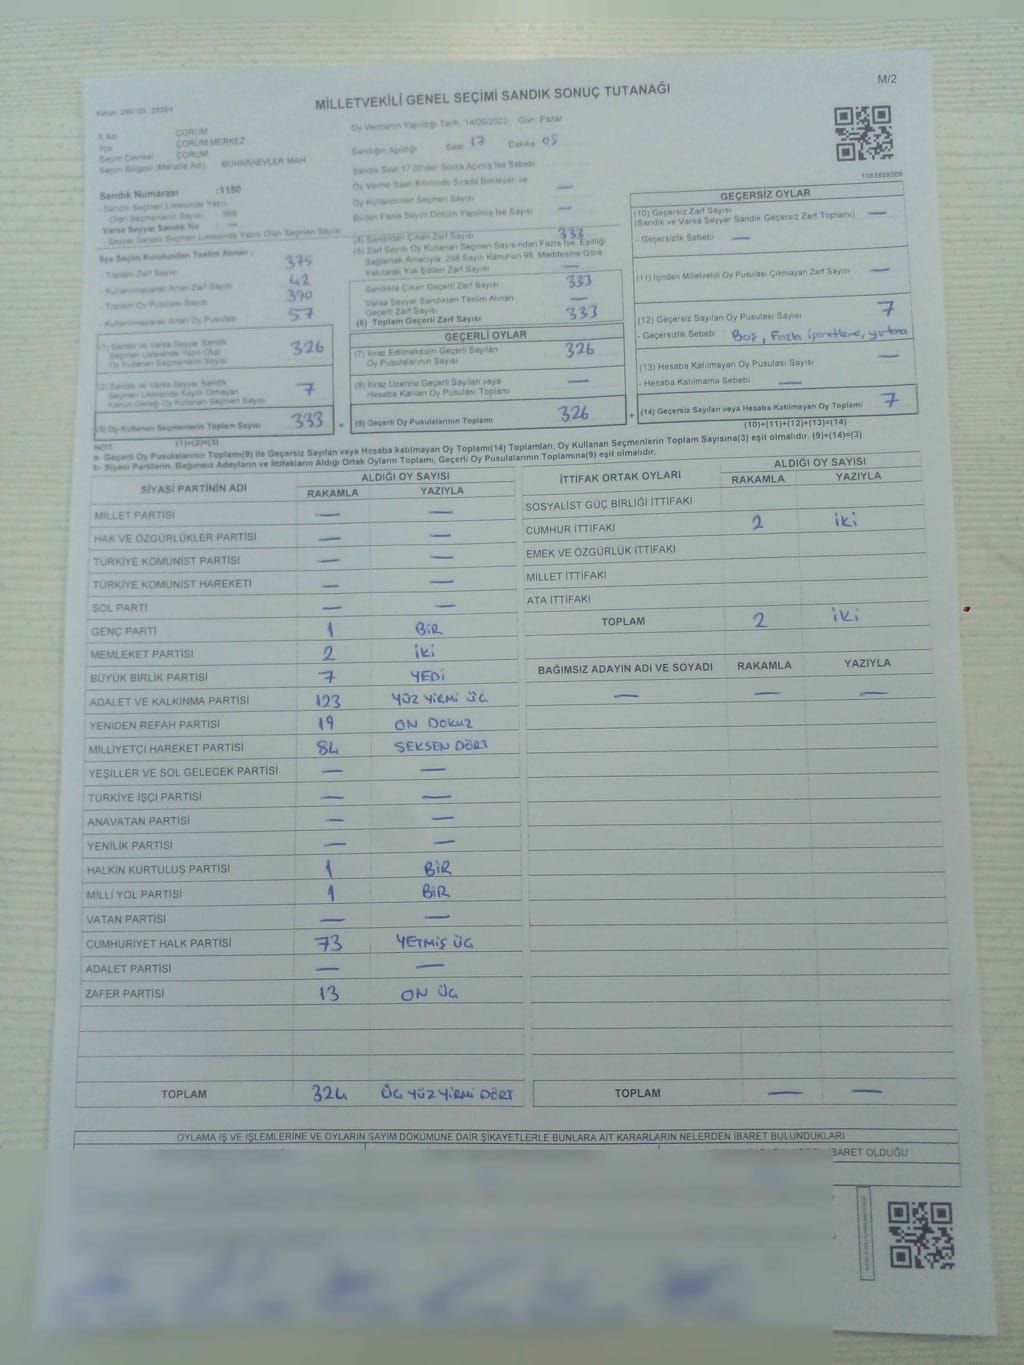 M/2
MİLLETVEKİLİ GENEL SEÇİMİ SANDIK SONUÇ TUTANAĞI
İl Adı ÇORUM
İlçe ÇORUM MERKEZ
Seçim Çevresi ÇORUM
Seçim Bölgesi (Mahalle Adı) BUHARAEVLER MAH
Sandık Numarası :1150
- Sandık Seçmen Listesinde Yazılı
Olan Seçmenlerin Sayısı 368
Varsa Seyyar Sandık No : —
- Seyyar Sandık Seçmen Listesinde Yazılı Olan Seçmen Sayısı
İlçe Seçim Kurulundan Teslim Alınan :
- Toplam Zarf Sayısı 375
- Kullanılmayarak Artan Zarf Sayısı 42
- Toplam Oy Pusulası Sayısı 390
- Kullanılmayarak Artan Oy Pusulası 57
(1) Sandık ve Varsa Seyyar Sandık
Seçmen Listesinde Yazılı Olup
Oy Kullanan Seçmenlerin Sayısı 326
(2) Sandık ve Varsa Seyyar Sandık
Seçmen Listesinde Kayıtlı Olmayan
Kanun Gereği Oy Kullanan Seçmen Sayısı 7
(3) Oy Kullanan Seçmenlerin Toplam Sayısı 333 =
(1)+(2)=(3)
Oy Vermenin Yapıldığı Tarih 14/05/2023 Gün Pazar
Sandığın Açıldığı Saat 17 Dakika 05
Sandık Saat 17.00'den Sonra Açılmış İse Sebebi
Oy Verme Saati Bitiminde Sırada Bekleyen ve
Oy Kullandırılan Seçmen Sayısı —
Birden Fazla Sayım Döküm Yapılmış İse Sayısı —
(4) Sandıktan Çıkan Zarf Sayısı 333
(5) Zarf Sayısı Oy Kullanan Seçmen Sayısından Fazla İse, Eşitliği
Sağlamak Amacıyla, 298 Sayılı Kanunun 98. Maddesine Göre
Yakılarak Yok Edilen Zarf Sayısı —
Sandıkta Çıkan Geçerli Zarf Sayısı 333
Varsa Seyyar Sandıktan Teslim Alınan
Geçerli Zarf Sayısı —
(6) Toplam Geçerli Zarf Sayısı 333
GEÇERLİ OYLAR
(7) İtiraz Edilmeksizin Geçerli Sayılan
Oy Pusulalarının Sayısı 326
(8) İtiraz Üzerine Geçerli Sayılan veya
Hesaba Katılan Oy Pusulası Toplamı —
(9) Geçerli Oy Pusulalarının Toplamı 326 +
1083859509
GEÇERSİZ OYLAR
(10) Geçersiz Zarf Sayısı
(Sandık ve Varsa Seyyar Sandık Geçersiz Zarf Toplamı) —
- Geçersizlik Sebebi : —
(11) İçinden Milletvekili Oy Pusulası Çıkmayan Zarf Sayısı —
(12) Geçersiz Sayılan Oy Pusulası Sayısı 7
- Geçersizlik Sebebi : Boş, Fazla işaretleme, yırtma
(13) Hesaba Katılmayan Oy Pusulası Sayısı —
- Hesaba Katılmama Sebebi : —
(14) Geçersiz Sayılan veya Hesaba Katılmayan Oy Toplamı 7
(10)+(11)+(12)+(13)=(14)
NOT:
a- Geçerli Oy Pusulalarının Toplamı(9) ile Geçersiz Sayılan veya Hesaba katılmayan Oy Toplamı(14) Toplamları, Oy Kullanan Seçmenlerin Toplam Sayısına(3) eşit olmalıdır. (9)+(14)=(3)
b- Siyasi Partilerin, Bağımsız Adayların ve İttifakların Aldığı Ortak Oyların Toplamı, Geçerli Oy Pusulalarının Toplamına(9) eşit olmalıdır.
SİYASİ PARTİNİN ADI ALDIĞI OY SAYISI
RAKAMLA YAZIYLA
MİLLET PARTİSİ — —
HAK VE ÖZGÜRLÜKLER PARTİSİ — —
TÜRKİYE KOMÜNİST PARTİSİ — —
TÜRKİYE KOMÜNİST HAREKETİ — —
SOL PARTİ — —
GENÇ PARTİ 1 BİR
MEMLEKET PARTİSİ 2 İKİ
BÜYÜK BİRLİK PARTİSİ 7 YEDİ
ADALET VE KALKINMA PARTİSİ 123 YÜZ YİRMİ ÜÇ
YENİDEN REFAH PARTİSİ 19 ON DOKUZ
MİLLİYETÇİ HAREKET PARTİSİ 84 SEKSEN DÖRT
YEŞİLLER VE SOL GELECEK PARTİSİ — —
TÜRKİYE İŞÇİ PARTİSİ — —
ANAVATAN PARTİSİ — —
YENİLİK PARTİSİ — —
HALKIN KURTULUŞ PARTİSİ 1 BİR
MİLLİ YOL PARTİSİ 1 BİR
VATAN PARTİSİ — —
CUMHURİYET HALK PARTİSİ 73 YETMİŞ ÜÇ
ADALET PARTİSİ — —
ZAFER PARTİSİ 13 ON ÜÇ
TOPLAM 324 ÜÇ YÜZ YİRMİ DÖRT
İTTİFAK ORTAK OYLARI ALDIĞI OY SAYISI
RAKAMLA YAZIYLA
SOSYALİST GÜÇ BİRLİĞİ İTTİFAKI
CUMHUR İTTİFAKI 2 İKİ
EMEK VE ÖZGÜRLÜK İTTİFAKI
MİLLET İTTİFAKI
ATA İTTİFAKI
TOPLAM 2 İKİ
BAĞIMSIZ ADAYIN ADI VE SOYADI RAKAMLA YAZIYLA
— — —
TOPLAM — —
OYLAMA İŞ VE İŞLEMLERİNE VE OYLARIN SAYIM DÖKÜMÜNE DAİR ŞİKAYETLERLE BUNLARA AİT KARARLARIN NELERDEN İBARET BULUNDUKLARI
BARET OLDUĞU